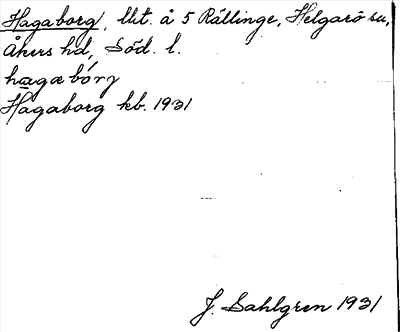 Hagaborg, llit. å 5 Rällinge, Helgarö sn,
Åkers hd, Söd. l.
hagabórj
Hagaborg kb. 1931
J. Sahlgren 1931